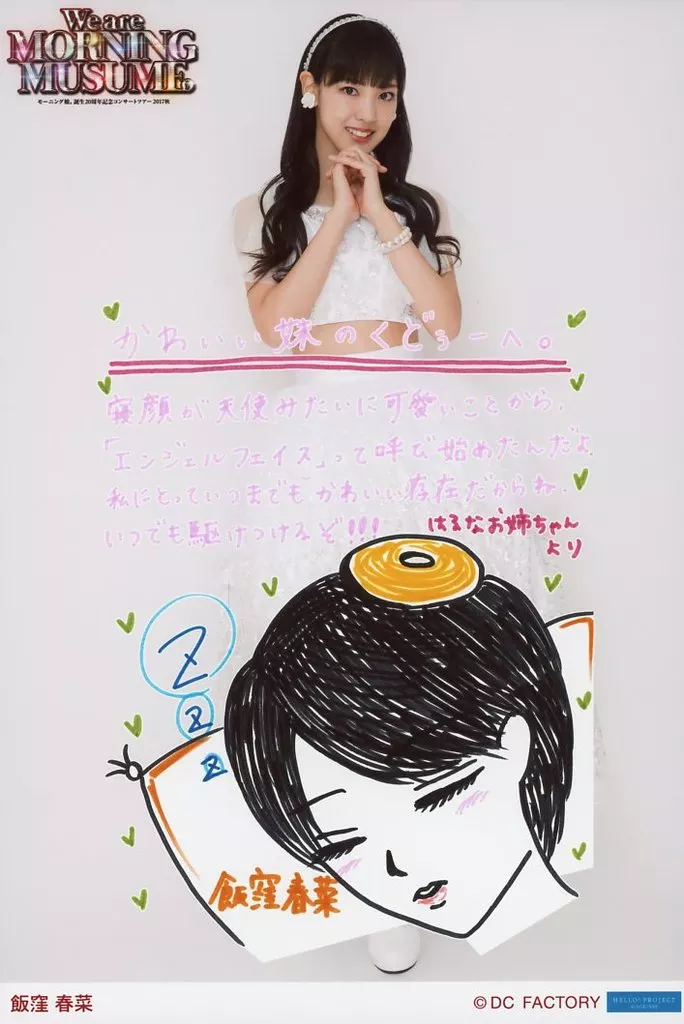 We are
MORNING
MUSUME。
モーニング娘。誕生20周年記念コンサートツアー2017秋
かわいい妹のくどぅーへ。
寝顔が天使みたいに可愛いことから、
「エンジェルフェイス」って呼び始めたんだよ
私にとっていつまでもかわいい存在だからね、
いつでも駆けつけるぞ!!!
はるなお姉ちゃん
より
Z
Z
Z
飯窪春菜
飯窪 春菜
©DC FACTORY
HELLO! PROJECT